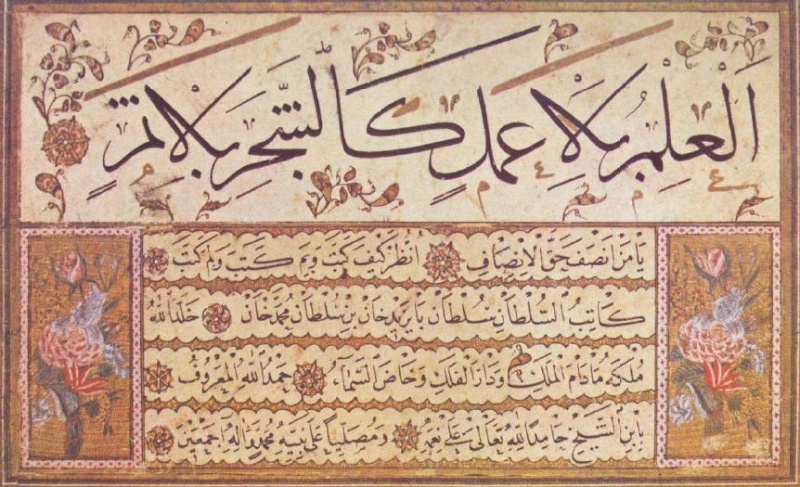 اَلْعِلْمُ بِلَا عَمَلٍ كَالشَّجَرِ بِلَا ثَمَرٍ
يا من انصف حق الانصاف انظر كيف كتب وبم كتب ولم كتب
كاتب السلطان بن سلطان بايزيد خان بن سلطان محمد خان خلد الله
ملكه ما دام الملك ودار الفلك وخاض السماء حمد الله المعروف
بابن الشيخ حامدا لله تعالى على نعمه ومصليا على نبيه محمد واله اجمعين